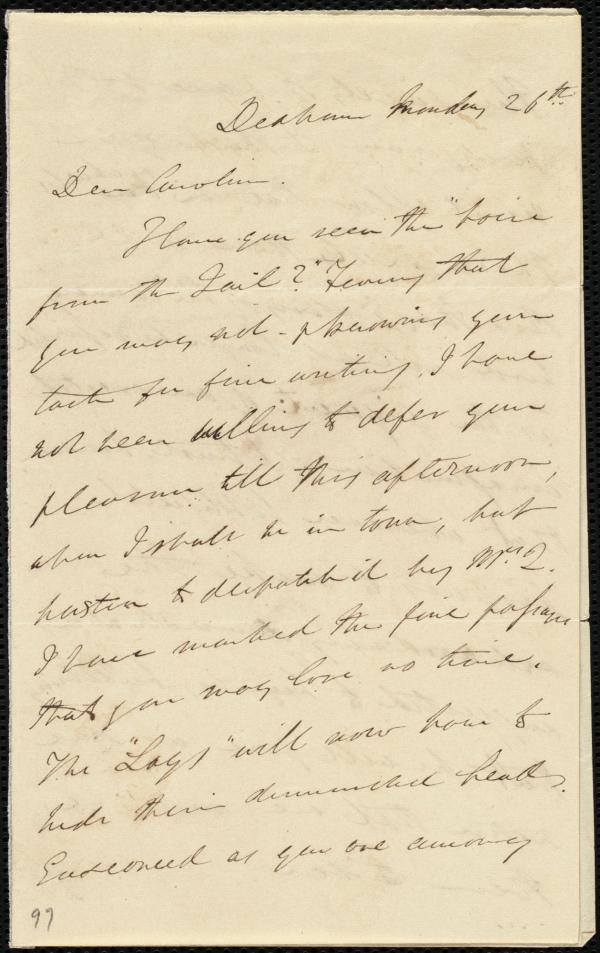 Dedham Monday 26th
Dear Caroline.
Have you seen the "Voice
from the Jail?" Fearing that
you may not - & knowing your
taste for fine writing, I have
not been willing to defer your
pleasure till this afternoon,
when I shall be in town, but
hasten to despatch it by Mrs. Q.
I have marked the fine passages
that you may lose no time.
The "Lays" will now have to
hide their diminished heads.
Ensconced as you are among
97